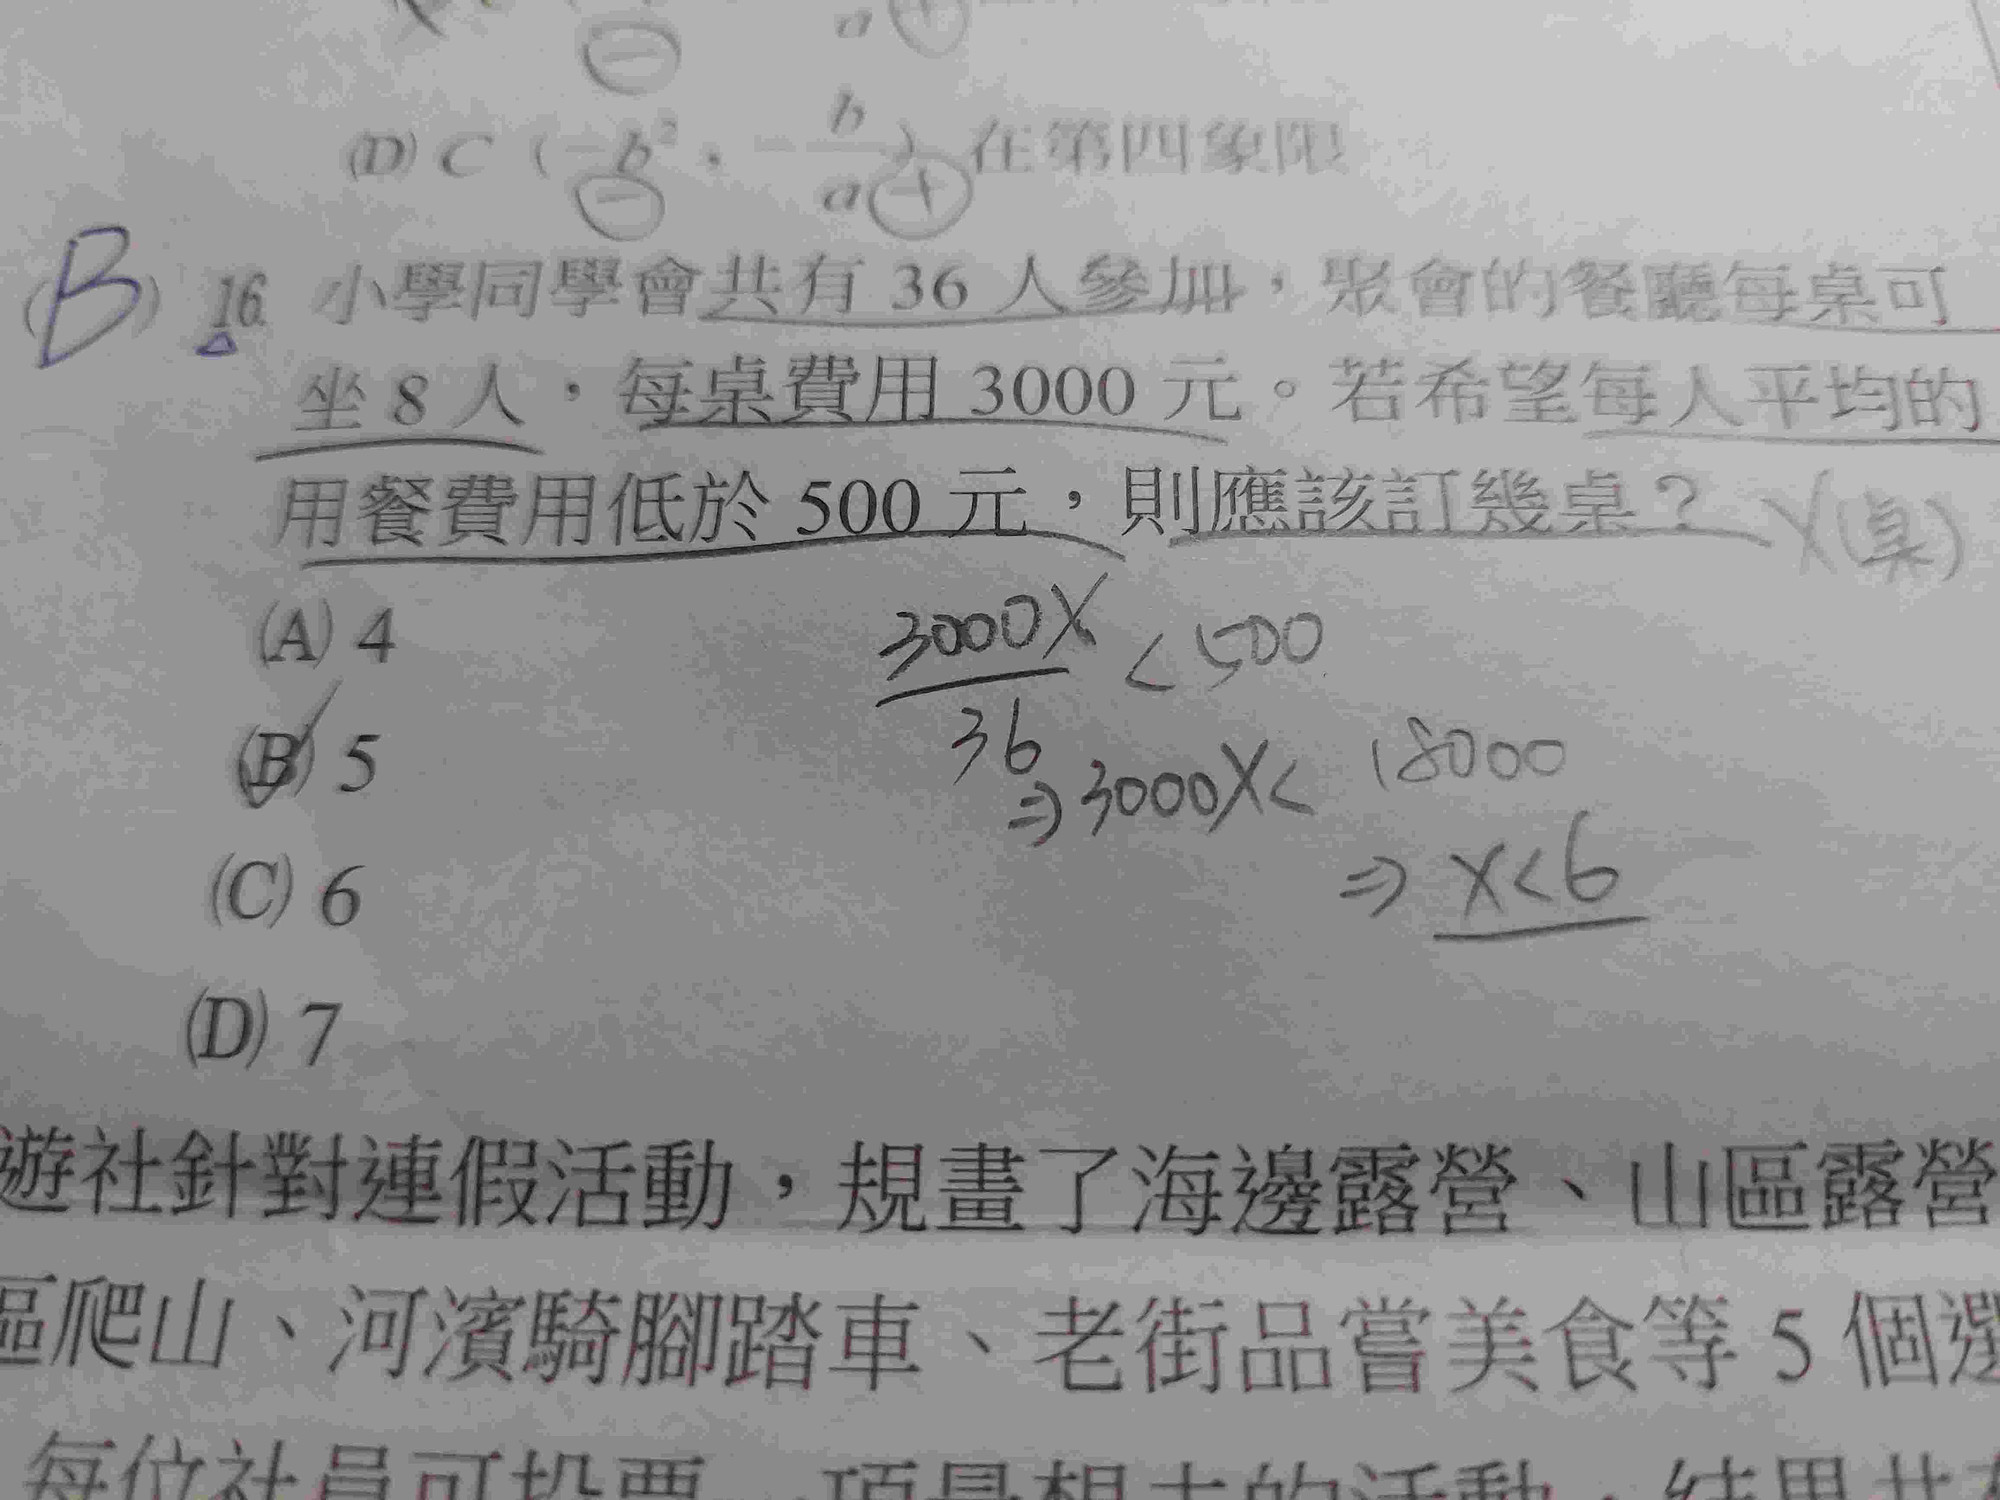 a
(D) C (-b²，-b/a) 在第四象限
(B) 16. 小學同學會共有 36 人參加，聚會的餐廳每桌可
坐 8 人，每桌費用 3000 元。若希望每人平均的
用餐費用低於 500 元，則應該訂幾桌？ X(桌)
(A) 4
3000X/36 < 500
(B) 5
⇒ 3000X < 18000
(C) 6
⇒ X < 6
(D) 7
遊社針對連假活動，規畫了海邊露營、山區露營
區爬山、河濱騎腳踏車、老街品嘗美食等 5 個選
每位社員可投票